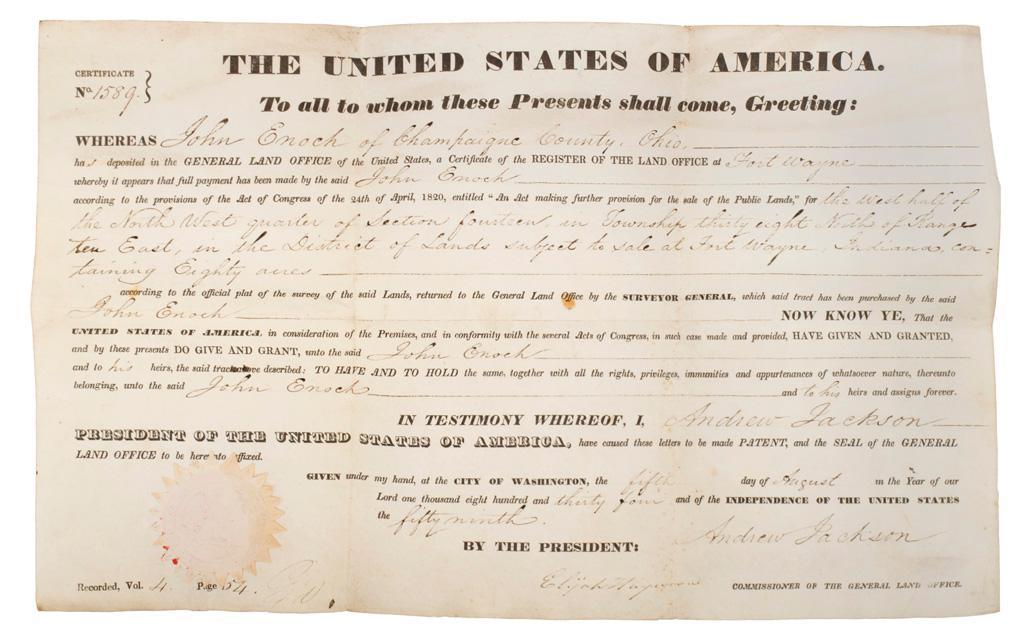 THE UNITED STATES OF AMERICA.
CERTIFICATE
No. 1589.
To all to whom these Presents shall come, Greeting:
WHEREAS John Enoch of Champaigne County, Ohio,
has deposited in the GENERAL LAND OFFICE of the United States, a Certificate of the REGISTER OF THE LAND OFFICE at Fort Wayne
whereby it appears that full payment has been made by the said John Enoch
according to the provisions of the Act of Congress of the 24th of April, 1820, entitled "An Act making further provision for the sale of the Public Lands," for the west half of
the North West quarter of Section fourteen, in Township thirty eight North of Range
ten East, in the District of Lands subject to sale at Fort Wayne, Indiana, con-
taining Eighty acres
according to the official plat of the survey of the said Lands, returned to the General Land Office by the SURVEYOR GENERAL, which said tract has been purchased by the said
John Enoch NOW KNOW YE, That the
UNITED STATES OF AMERICA, in consideration of the Premises, and in conformity with the several Acts of Congress, in such case made and provided, HAVE GIVEN AND GRANTED,
and by these presents DO GIVE AND GRANT, unto the said John Enoch
and to his heirs, the said tract above described: TO HAVE AND TO HOLD the same, together with all the rights, privileges, immunities and appurtenances of whatsoever nature, thereunto
belonging, unto the said John Enoch and to his heirs and assigns forever.
IN TESTIMONY WHEREOF, I, Andrew Jackson
PRESIDENT OF THE UNITED STATES OF AMERICA, have caused these letters to be made PATENT, and the SEAL of the GENERAL
LAND OFFICE to be hereunto affixed.
GIVEN under my hand, at the CITY OF WASHINGTON, the fifth day of August in the Year of our
Lord one thousand eight hundred and thirty four and of the INDEPENDENCE OF THE UNITED STATES
the fifty ninth.
BY THE PRESIDENT: Andrew Jackson
Elijah Hayward COMMISSIONER OF THE GENERAL LAND OFFICE.
Recorded, Vol. 4. Page 54.